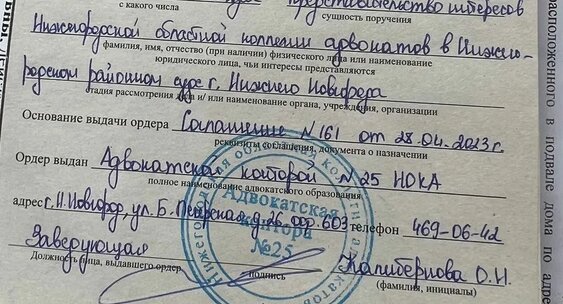 представительство интересов
с какого числа
сущность поручения
Нижегородской областной коллегии адвокатов в Нижего-
фамилия, имя, отчество (при наличии) физического лица или наименование
юридического лица, чьи интересы представляются
родском районном суде г. Нижнего Новгорода
стадия рассмотрения дела и/ или наименование органа, учреждения, организации
Основание выдачи ордера Соглашение N161 от 28.04.2023г.
реквизиты соглашения, документа о назначении
Ордер выдан Адвокатской конторой N25 НОКА
полное наименование адвокатского образования
адрес г. Н. Новгород, ул. Б. Печерская д. 26, оф. 603 телефон 469-06-42
Заверующая
Калибернова О.Н.
Должность лица, выдавшего ордер
подпись
(фамилия, инициалы)
Адвокатская
контора
№25
расположенного в подвале дома по адре